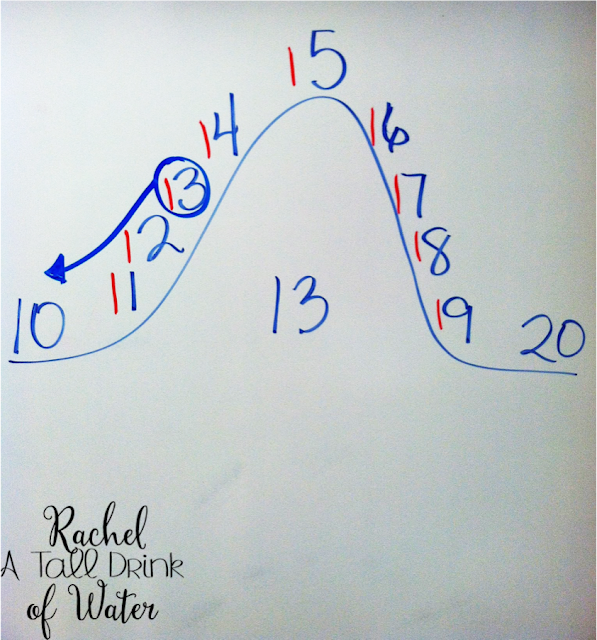 10
11
12
13
14
15
16
17
18
19
20
13
Rachel
A Tall Drink
of Water